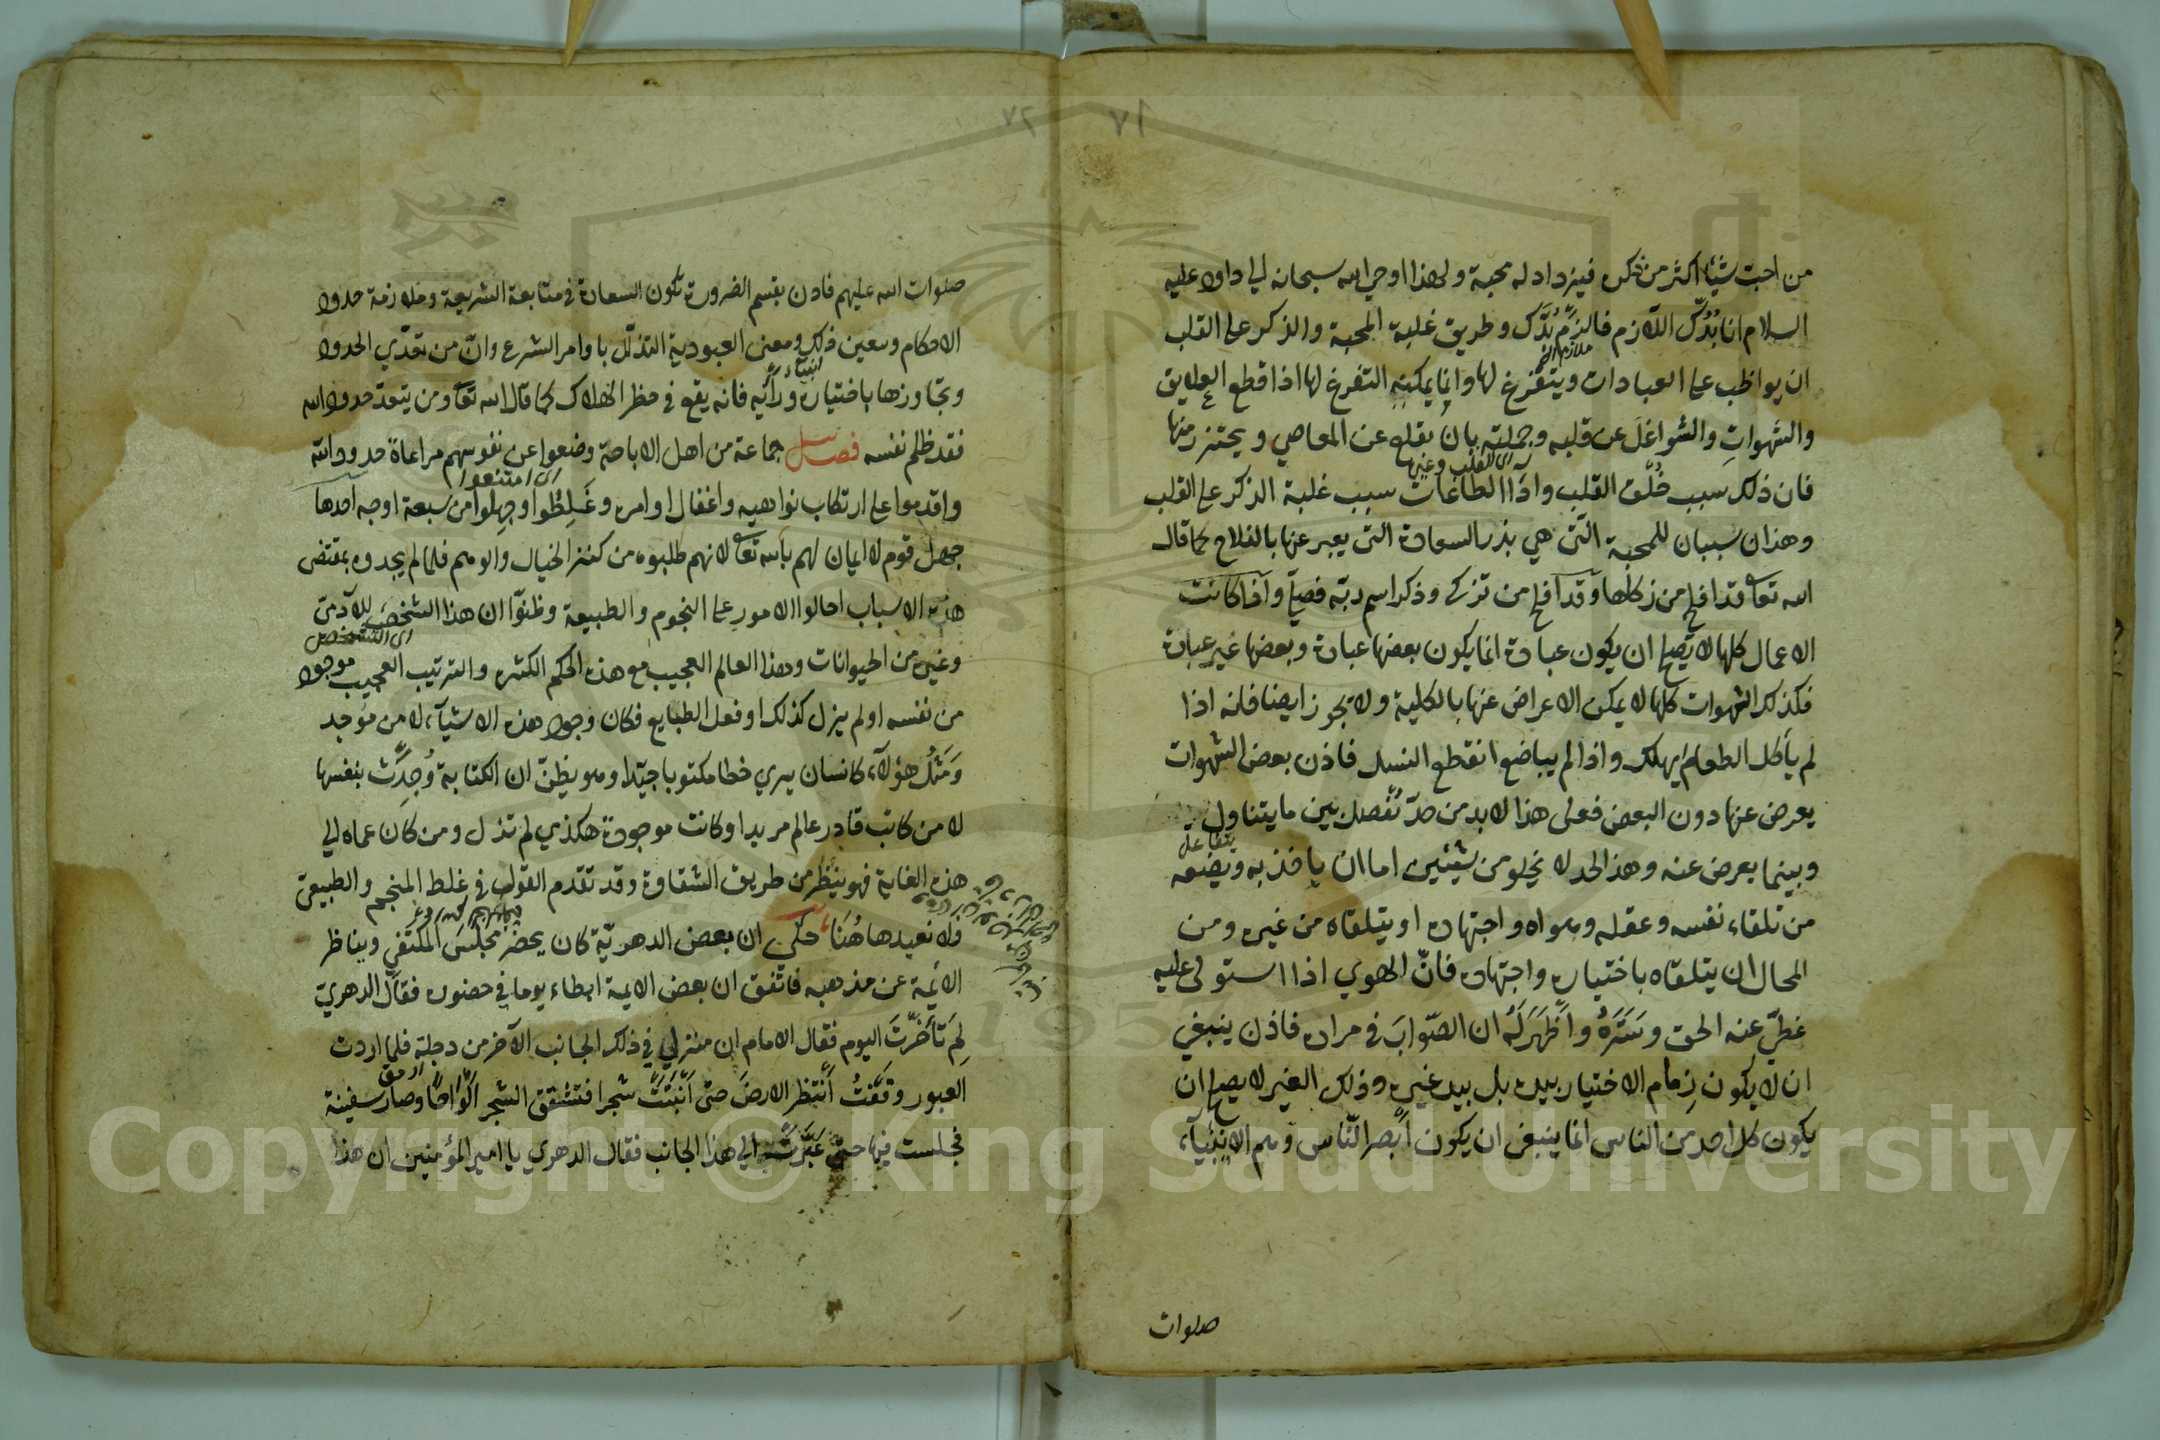 ١٧
من احبّ شيئا اكثر من ذكره فيزداد له محبة ولهذا اوحي الله سبحانه الي داود عليه
السلام انا بُدُّك اللّازم فالزم بُدَّك وطريق غلبة المحبة والذكر على القلب
ان يواظب على العبادات ويتفرّغ لها وانما يمكنه التفرغ لها اذا قطع العلايق
والشهواتِ والشواغلَ عن قلبه وجملته بان يقلع عن المعاصي ويحترز منها
اى القلب وغيرها
فان ذلك سبب خُلُّو القلب واذا الطاعات سبب غلبة الذكر على القلب
وهذان سببان للمحبة التي هي بذر السعادة التي يعبر عنها بالفلاح كما قال
الله تعا قد افلح من زكاها وقد افلح من تزكى وذكر اسم ربّه فصلّي واذا كانت
الاعمال كلها لا تصلح ان يكون عبادة انما يكون بعضها عبادة وبعضها غير عبادة
فكذلك الشهوات كلها لا يمكن الاعراض عنها بالكلية ولا تجوز ايضا فانه اذا
لم يأكل الطعام يهلك واذا لم يباضع انقطع النسل فاذن بعض الشهوات
يعرض عنها دون البعض فعلى هذا لا بد من حدّ تفصل بين ما يتناول
وبينما يعرض عنه وهذا الحد لا يخلو من شيئين اما ان ياخذ به ويضعه
من تلقاء نفسه وعقله وهواه واجتهاده او يتلقاه من غيره ومن
المحال ان يتلقاه باختياره واجتهاده فانّ الهوي اذا استولى عليه
غطّي عنه الحق وسَتَرَهُ واَظْهَرَ لَهُ ان الصّوابَ في مراده فاذن ينبغي
ان لا يكون زِمام الاختيار بيده بل بيد غيره وذلك الغير لا يصلح ان
يكون كل احد من الناس انما ينبغي ان يكون ابصر النّاس وهم الانبيآء
صلوات
٢٧
صلوات الله عليهم فاذن بقسم الضرورة تكون السعادة في متابعة الشريعة وملازمة حدود
الاحكام وتعين ذلك ومعنى العبودية التذلّل باوامر الشرع وانّ من تعدّي الحدود
وتجاوزها باختياره ورأيه فانه يقع في خطر الهلاك كما قال الله تعا ومن يتعدّ حدود الله
فقد ظلم نفسه فصل جماعة من اهل الاباحة وضعوا عن نفوسهم مراعاة حدود الله
اى امتنعوا
واقدموا على ارتكاب نواهيه واغفال اوامره وغَلِطُوا وجهِلوا من سبعة اوجه احدها
جهل قوم لا ايمان لهم بالله تعا لانهم طلبوه من كنز الخيال والوهم فلما لم يجدوه بمقتضى
هذه الاسباب احالوا الامور على النجوم والطبيعة وظنوّا ان هذا الشخص للآدمي
اى التشخص
وغيره من الحيوانات وهذا العالم العجيب مع هذه الحكم الكثيره والترتيب العجيب موجود
من نفسه او لم يزل كذلك او فعل الطبايع فكان وجود هذه الاشيآء لا من موجد
وَمَثَلُ هؤلآء كانسان يري خطا مكتوبا جيّدا وهو يظنّ ان الكتابة وُجِدَت بنفسها
لا من كاتب قادر عالم مريد او كانت موجودة هكذي لم تزل ومن كان عماه الي
هذه الغاية فهو ينظر من طريق الشقاوة وقد تقدم القول في غلط المنجم والطبيعي
فلا نعيدها هُنَا حكي ان بعض الدهريّة كان يحضر مجلس المكتفي ويناظر
الائمة عن مذهبه فاتّفق ان بعض الائمة ابطاء يوما في حضوره فقال الدهريّ
لِمَ تأخّرتَ اليوم فقال الامام ان منزلي في ذلك الجانب الآخر من دجلة فلما اردت
العبور وقفتُ أنتظر الارضَ حتى اَنْبَتَتْ شجرا فتشقق الشجر الواحًا وصار سفينة
فجلست فيها حتى عَبَرَتْ الي هذا الجانب فقال الدهري يا امير المؤمنين ان هذا
Copyright © King Saud University
1957